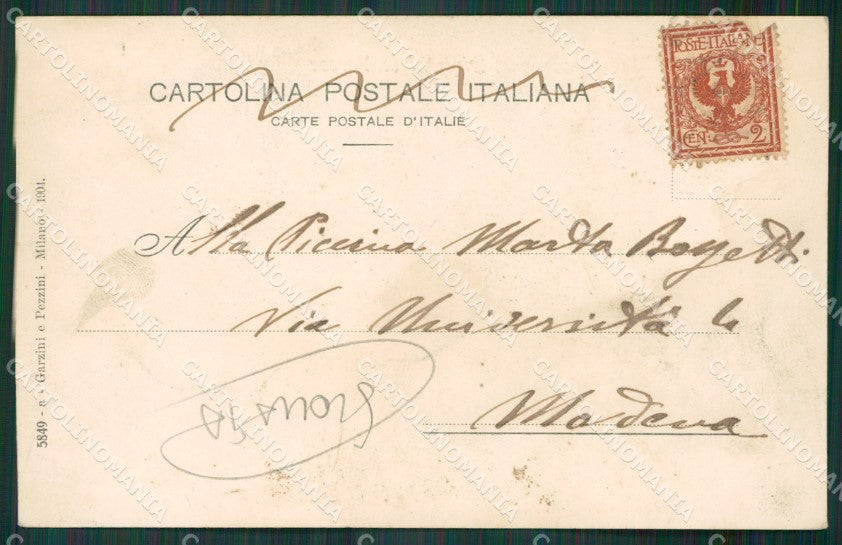 CARTOLINA POSTALE ITALIANA
CARTE POSTALE D'ITALIE
POSTE·ITALIANE
CEN· 2
Alla Piccina Marta
Via Università 6
Modena
5849 - a - Garzini e Pezzini - Milano - 1904.
CARTOLINOMANIA